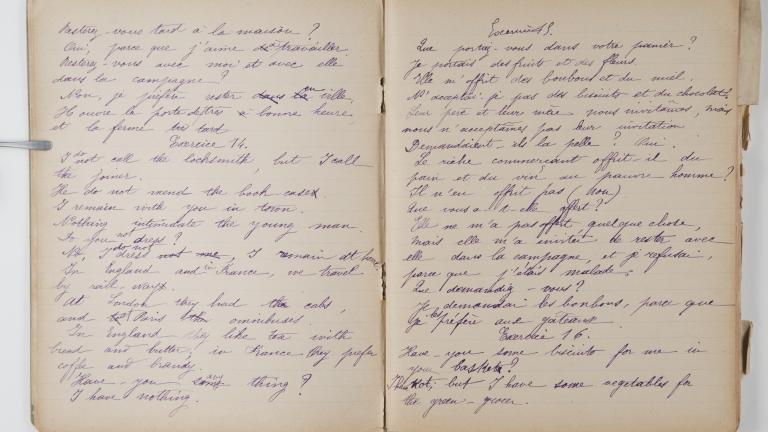 Resterez-vous tard à la maison ?
Oui, parce que j'aime travailler.
Resterez-vous avec moi et avec elle
dans la campagne ?
Non, je préfère rester dans en ville.
Il ouvre la porte très à bonne heure
et la ferme tard
Exercice 14.
I do not call the locksmith, but I call
the joiner.
He do not mend the book case.
I remain with you in town.
Nothing intimidate the young man.
Do you not dress ?
No, I do not dress not me, I remain at home.
In England and in France, we travel
by rail-ways.
At London they had the cabs,
and at Paris the omnibuses.
In England they like tea with
bread and butter; in France they prefer
coffee and brandy.
Have-you some any thing ?
I have nothing.
Exercice 15.
Que portez-vous dans votre panier ?
Je portais des fruits et des fleurs.
Elle m'offrit des bonbons et du miel.
N'acceptai-je pas des biscuits et du chocolat?
Leur père et leur mère nous invitâmes, mais
nous n'acceptâmes pas leur invitation
Demandaient-ils la pelle ? Oui.
Le riche commerçant offrit-il du
pain et du vin au pauvre homme ?
Il n'en offrit pas (Non)
Que vous a-t-elle offert ?
Elle ne m'a pas offert quelque chose,
mais elle m'a invitée de rester avec
elle dans la campagne, et je refusai,
parce que j'étais malade.
Que demandiez-vous ?
Je demandai les bonbons, parce que
je les préfère aux gâteaux
Exercice 16.
Have you some biscuits for me in
your basket ?
not; but I have some vegetables for
the green-grocer.